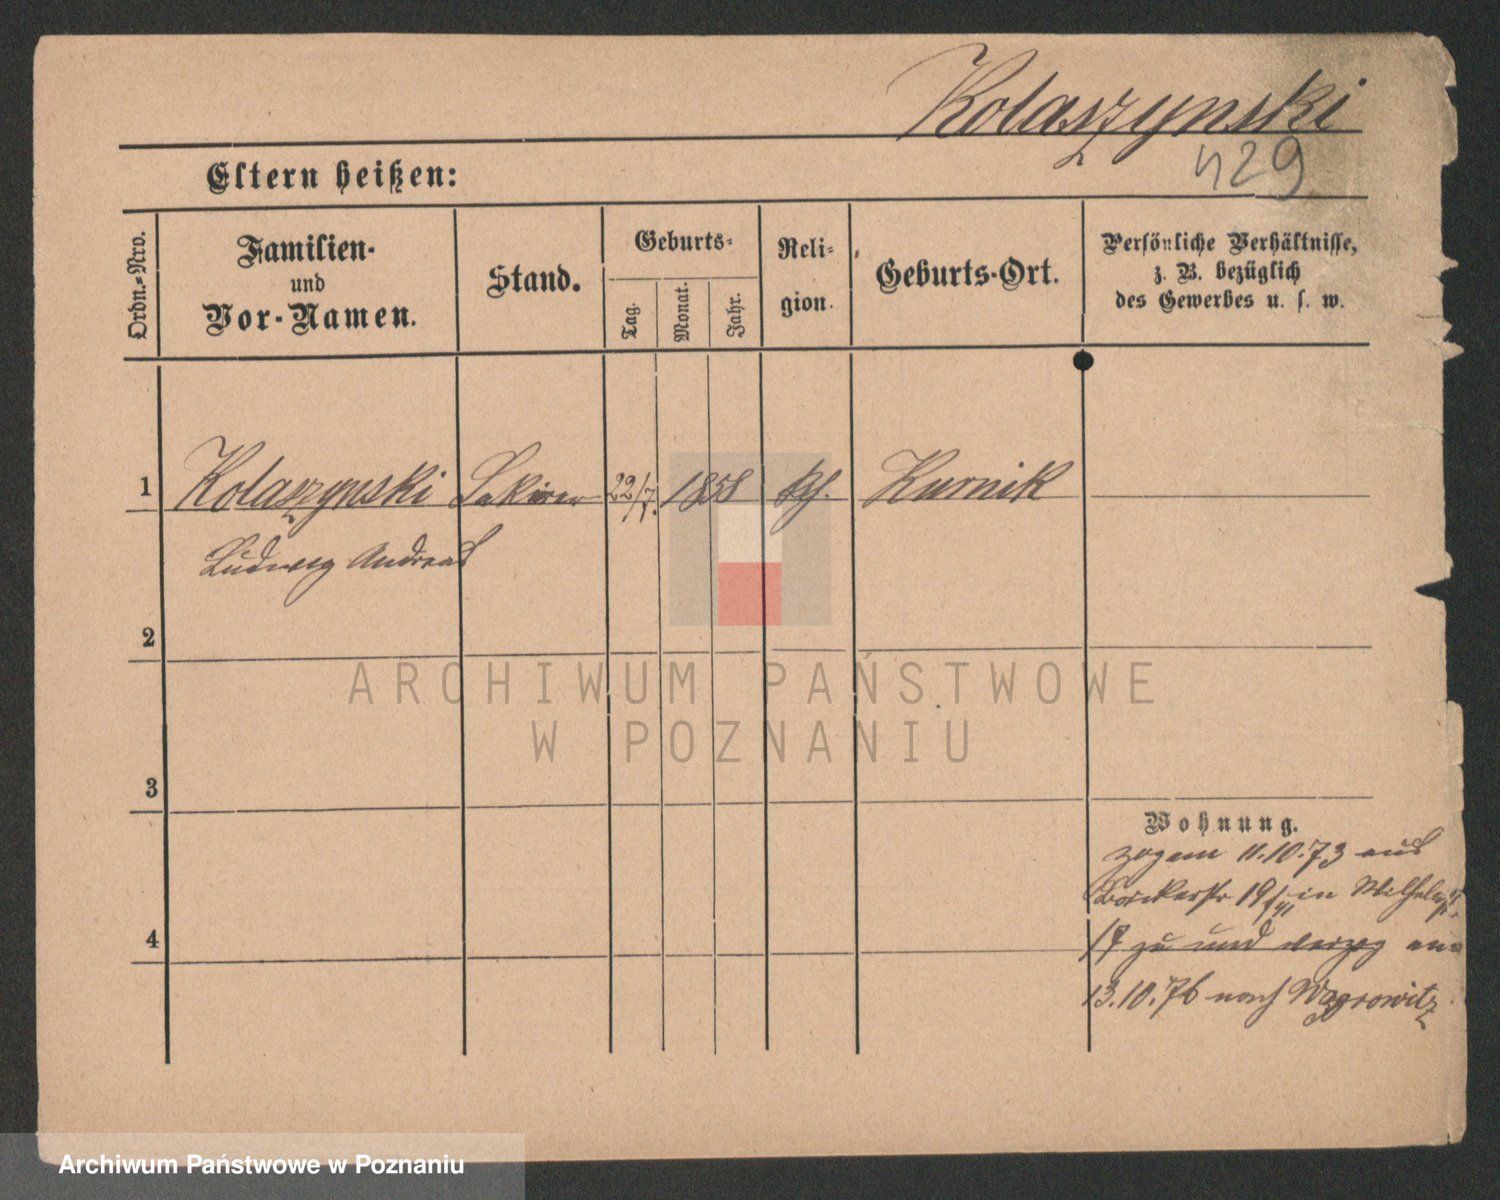 Kolaszynski
429
Eltern heißen:
Ordn.-Nro.
Familien-
und
Vor-Namen.
Stand.
Geburts-
Tag.
Monat.
Jahr.
Reli-
gion.
Geburts-Ort.
Persönliche Verhältnisse,
z. B. bezüglich
des Gewerbes u. s. w.
1 Kolaszynski 22/7. 1858 Kurnik
Ludwig Andreas
2
3
4
Wohnung.
zog am 11.10.73 aus
19 in Wilhelmstr.
17 zu und verzog am
13.10.76 nach Wągrowitz
ARCHIWUM PAŃSTWOWE
W POZNANIU
Archiwum Państwowe w Poznaniu